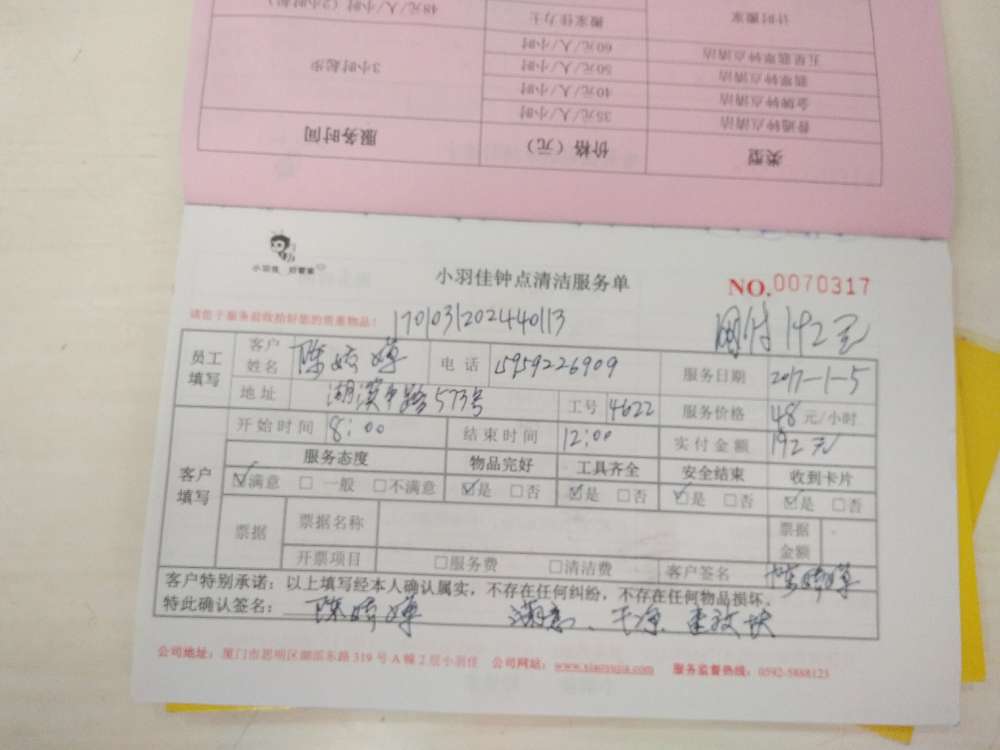 48元/人/小时（2小时起）
搬家佳力士
计时搬家
60元/人/小时
五星翡翠钟点清洁
3小时起步
50元/人/小时
翡翠钟点清洁
40元/人/小时
金牌钟点清洁
35元/人/小时
普通钟点清洁
服务时间 价格（元） 类型
小羽佳 好管家
小羽佳钟点清洁服务单
NO.0070317
请您于服务前收拾好您的贵重物品！ 1701031202440113 网付192元
员工填写 客户姓名 陈 电话 15959226909 服务日期 2017-1-5
地址 湖滨中路573号 工号 4622 服务价格 48元/小时
客户填写 开始时间 8:00 结束时间 12:00 实付金额 192元
服务态度 物品完好 工具齐全 安全结束 收到卡片
☑满意 □一般 □不满意 ☑是 □否 ☑是 □否 ☑是 □否 ☑是 □否
票据 票据名称 票据金额
开票项目 □服务费 □清洁费 客户签名 陈
客户特别承诺：以上填写经本人确认属实，不存在任何纠纷，不存在任何物品损坏.
特此确认签名： 陈 满意、干净
公司地址：厦门市思明区湖滨东路319号A幢2层小羽佳 公司网站：www.xiaoyujia.com 服务监督热线：0592-5888123